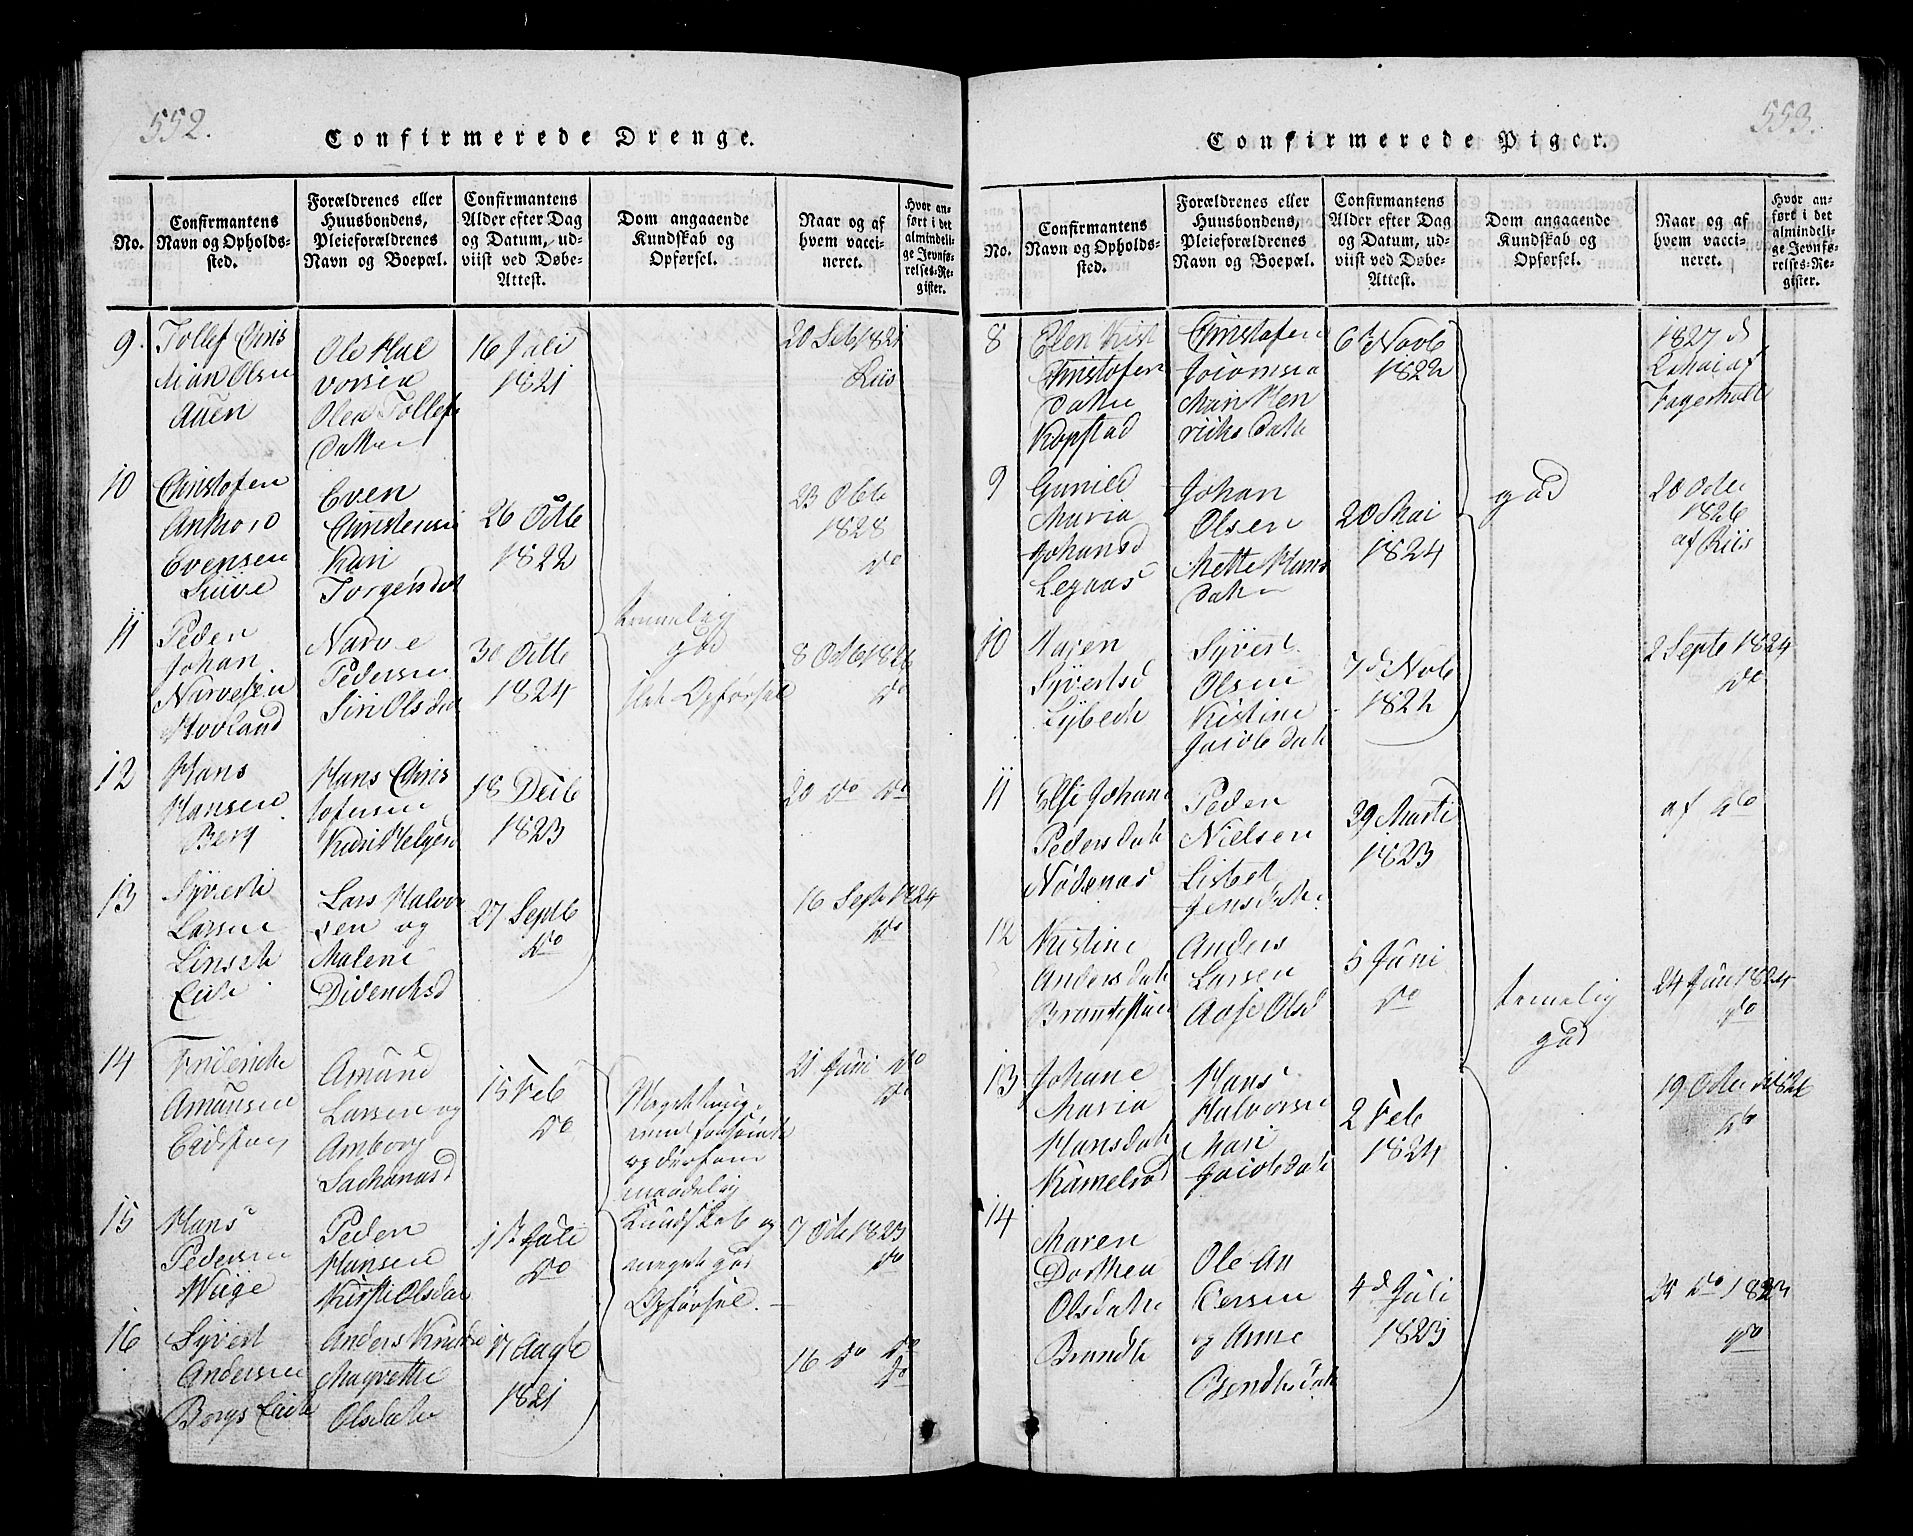 552.
Confirmerede Drenge.
No.
Confirmantens
Navn og Opholds-
sted.
Forældrenes eller
Huusbondens,
Pleieforældrenes
Navn og Boepæl.
Confirmantens
Alder efter Dag
og Datum, ud-
viist ved Døbe-
Attest.
Dom angaaende
Kundskab og
Opførsel.
Naar og af
hvem vacci-
neret.
Hvor an-
ført i det
almindeli-
ge Jevnfø-
relses-Re-
gister.
9.
Tollef Chris
tian Olsen
Auen
Ole Hal
vorsen
Olea Tollefs
datter
16 Juli
1821
20 Seb 1821
Riis
10
Christofer
Evensen
Even
Christensen
Kari
Torgersdat
26 Octb
1822
23 Octb
1828
do
11
Peder
Johan
Narvesen
Hovland
Narve
Pedersen
Siri Olsdat
30 Octb
1824
temelig
god
slet Opførsel
8 Octb 1826
do
12
Hans
Hansen
Berg
Hans Chris
tofersen
Kari Helges
18 Decb
1823
20 do do
13
Syvert
Larsen
Eide
Lars Halvor
sen og
Malene
Didericksd
27 Septb
do
16 Septb 1824
do
14
Friderich
Amunsen
Eidstang
Amund
Larsen og
Anborg
Sachariasd
15 Feb
do
Meget
og
maadelig
Kundskab og
meget god
Opførsel.
21 Juni do
do
15
Hans
Pedersen
Weige
Peder
Hansen
Kirsti Olsdat
1st Juli
do
7 Octb 1823
do
16
Syvert
Andersen
Borgs Eide
Anders
Magrette
Olsdatter
17 Augb
1821
16 do do
do
553.
Confirmerede Piger.
No.
Confirmantens
Navn og Opholds-
sted.
Forældrenes eller
Huusbondens,
Pleieforældrenes
Navn og Boepæl.
Confirmantens
Alder efter Dag
og Datum, ud-
viist ved Døbe-
Attest.
Dom angaaende
Kundskab og
Opførsel.
Naar og af
hvem vacci-
neret.
Hvor an-
ført i det
almindeli-
ge Jevnfø-
relses-Re-
gister.
8
Elen Kist
Christofer
datter
Kopstad
Christofer
Mari Hen
richs datt
6te Novb
1822
1827 d
2 Mai af
Fagerholt
9
Gunild
Maria
Johansd
Legaas
Johan
Olsen
Mette Hans
datter
20 Mai
1824
god
20 Octb
1826
af Riis
10
Maren
Syvertsd
Lybeck
Syvert
Olsen
Kistine
Jacobsdatt
7de Novb
1822
2 Septb 1824
do
11
Else Johane
Pedersdatt
Nødenæs
Peder
Nielsen
Lisbet
Jensdatt
29 Marti
1823
af do
12
Kistine
Andersdatt
Anders
Larsen
Aase Olsd
5 Juni
do
temelig
god
24 Juni 1824
do
13
Johane
Maria
Hansdatt
Hans
Halvorsen
Mari
Jacobsdatt
2 Feb
1824
19 Octb 1826
do
14
Maren
Dorthea
Olsdatter
Ole An
dersen
og Anne
Bendtsdatt
4de Juli
1823
25 do 1823
do